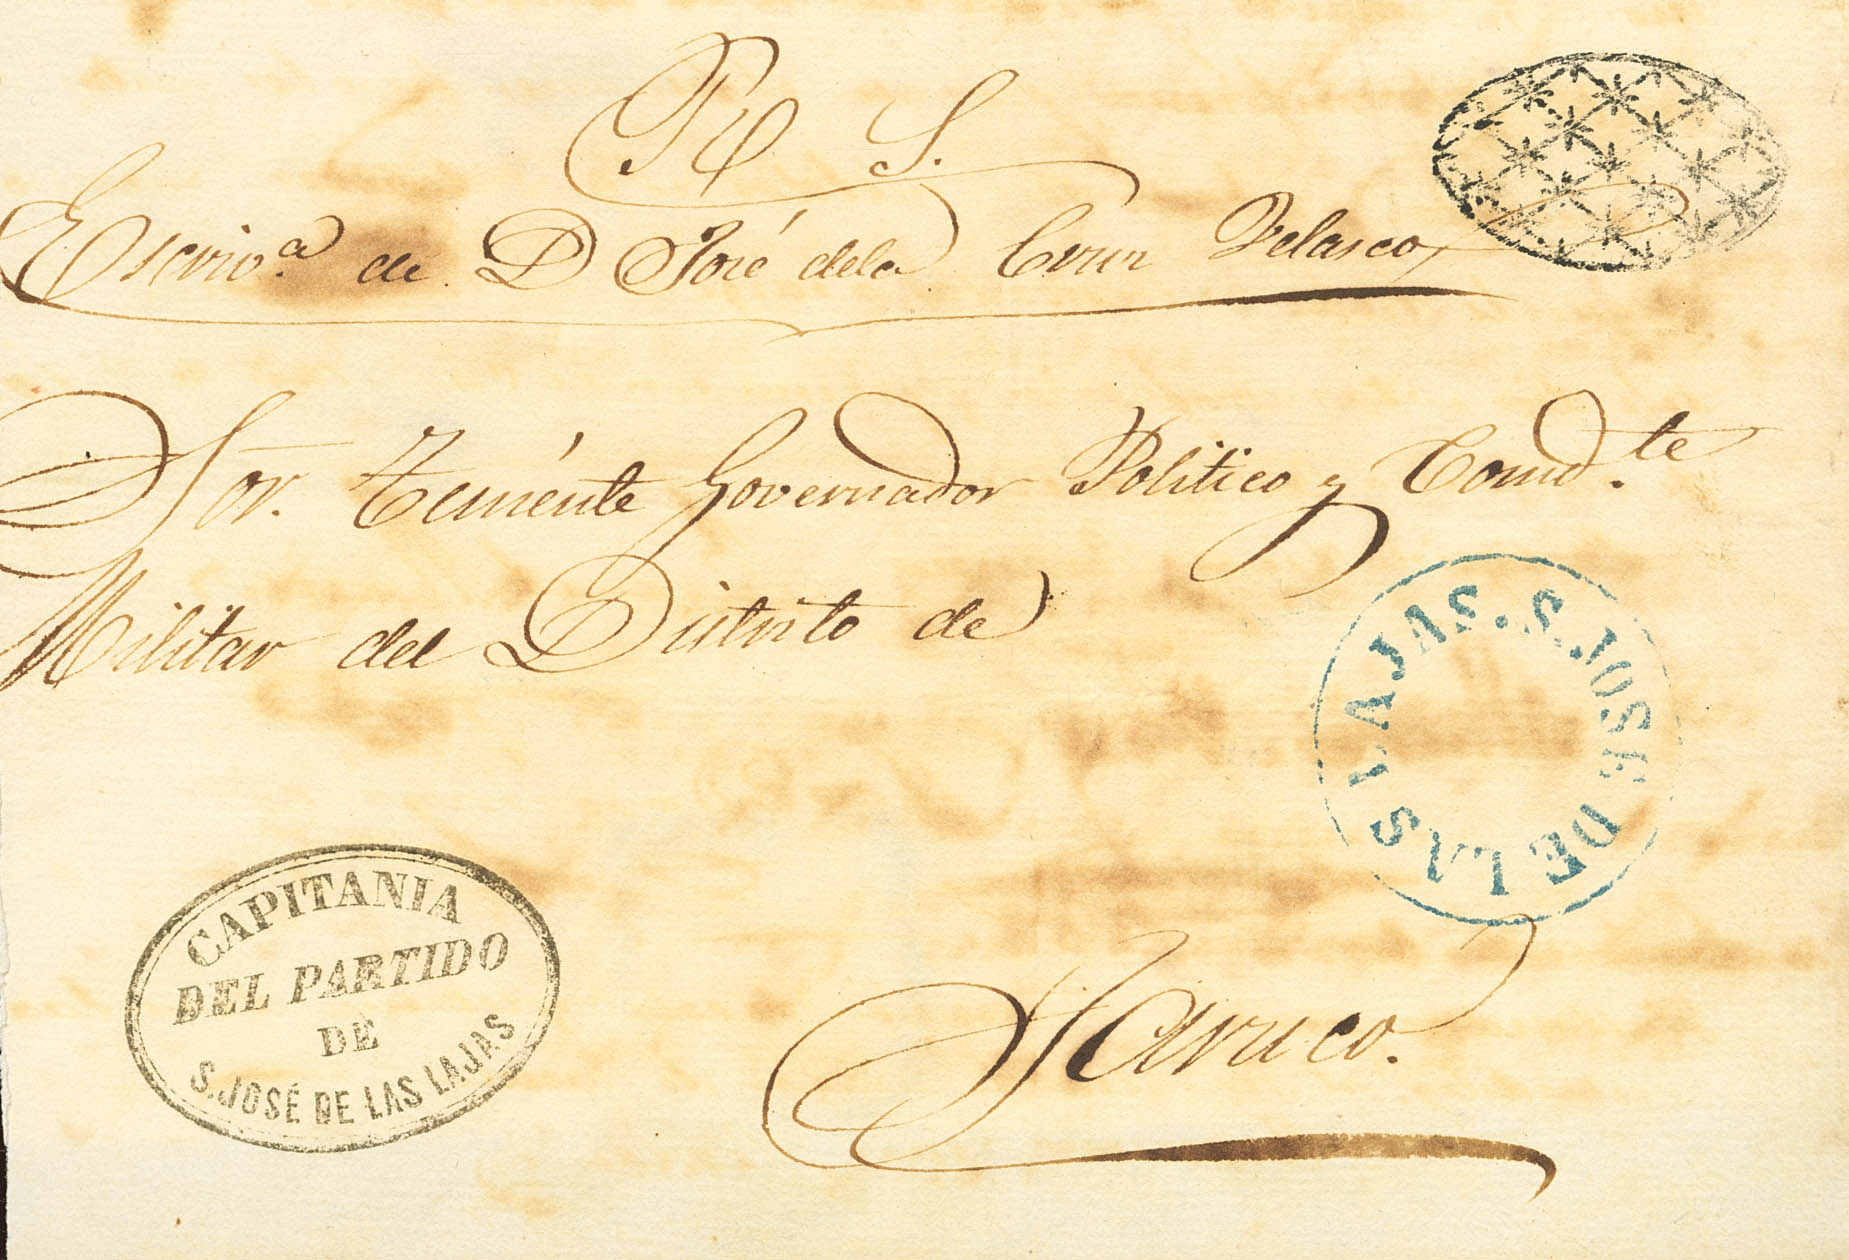 R S.
Escriv.ª de D José dela Cruz Velasco
Sor. Teniente Governador Politico y Comd.te
Militar del Distrito de
S. JOSE DE LAS LAJAS.
Jaruco.
CAPITANIA
DEL PARTIDO
DE
S. JOSÉ DE LAS LAJAS